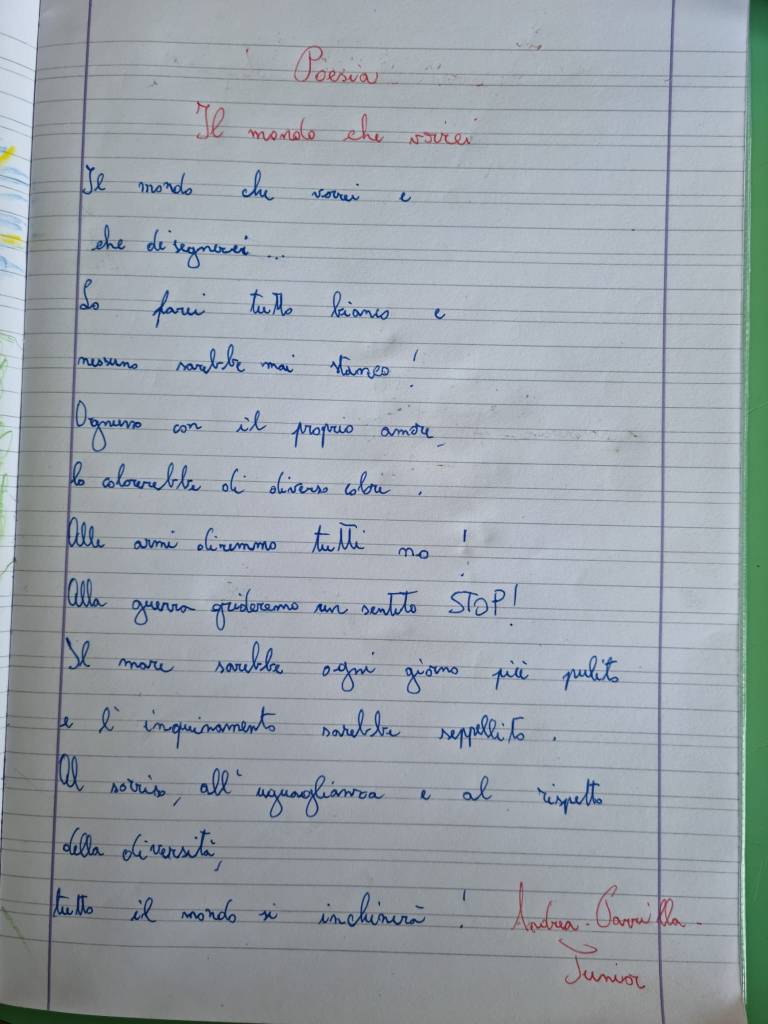 Poesia
Il mondo che vorrei
Il mondo che vorrei e
che disegnerei...
Lo farei tutto bianco e
nessuno sarebbe mai stanco!
Ognuno con il proprio amore,
lo colorerebbe di diverso colore.
Alle armi diremmo tutti no!
Alla guerra grideremo un sentito STOP!
Il mare sarebbe ogni giorno più pulito
e l'inquinamento sarebbe seppellito.
Al sorriso, all'uguaglianza e al rispetto
della diversità,
tutto il mondo si inchinerà! Andrea. Parrilla-
Junior